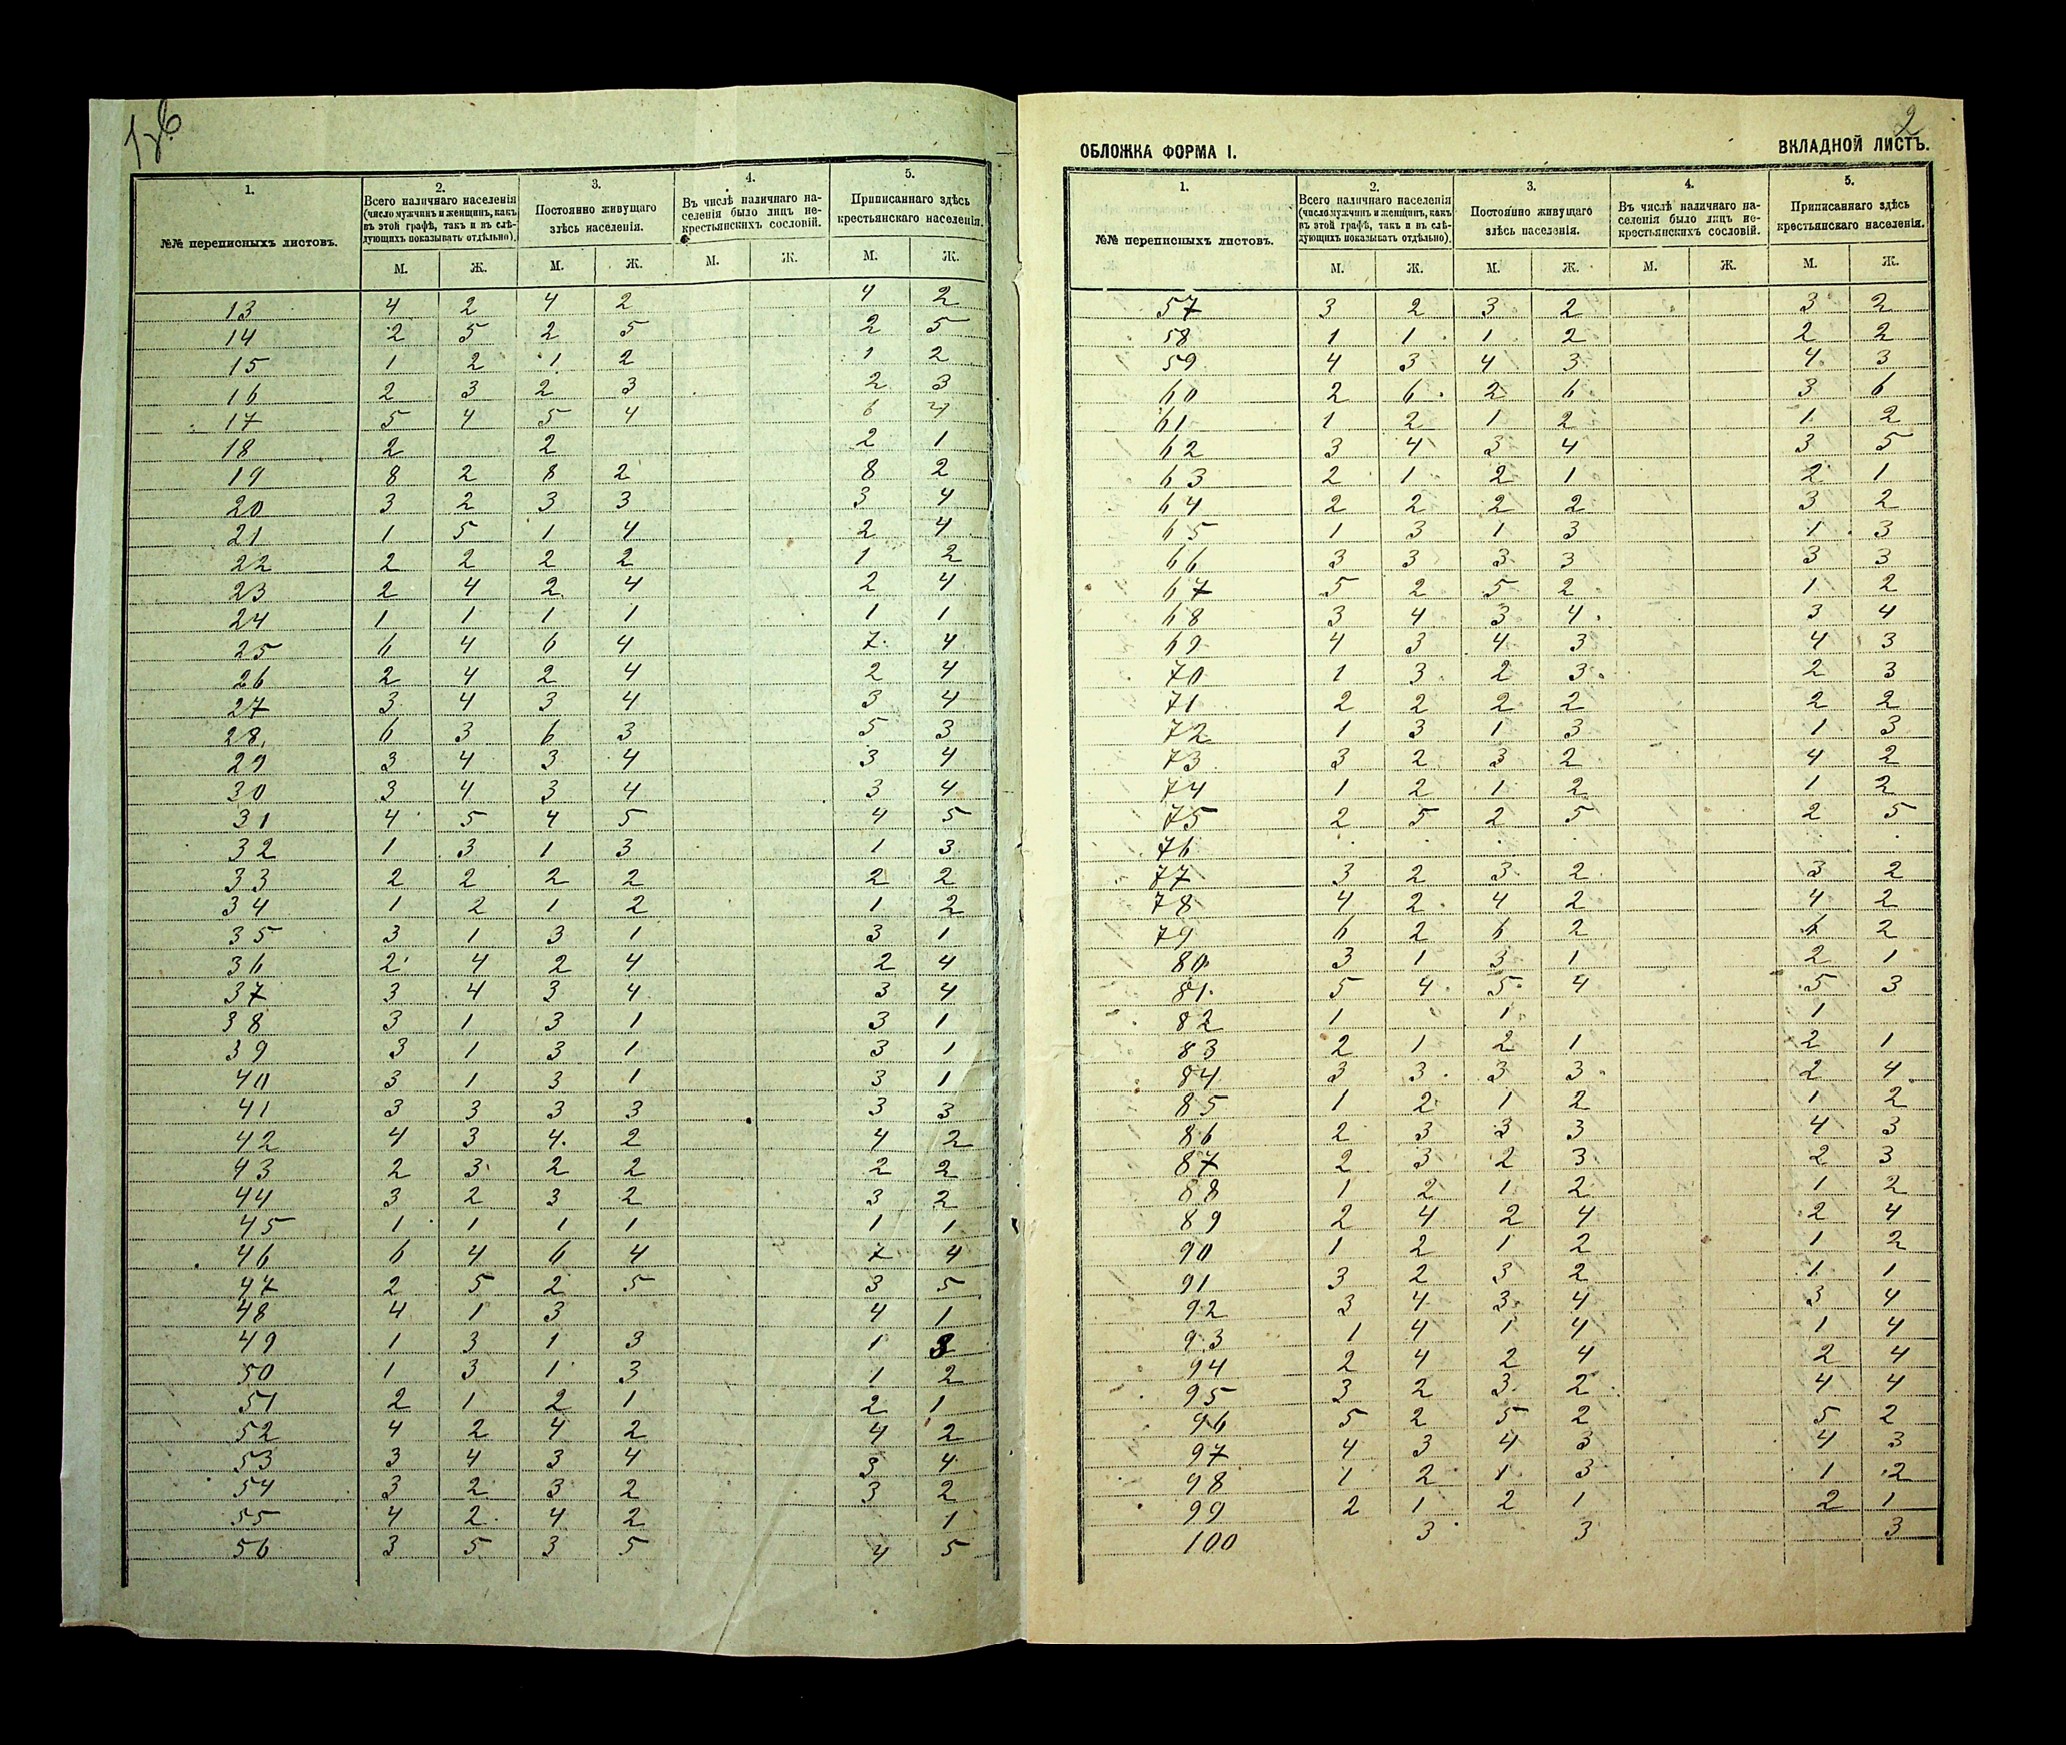 1.
2.
3.
4.
5.
№№ переписныхъ листовъ.
Всего наличнаго населенія
(число мужчинъ и женщинъ, какъ
въ этой графѣ, такъ и въ слѣ-
дующихъ показывать отдѣльно).
Постоянно живущаго
здѣсь населенія.
Въ числѣ наличнаго на-
селенія было лицъ не-
крестьянскихъ сословій.
Приписаннаго здѣсь
крестьянскаго населенія.
М. Ж. М. Ж. М. Ж. М. Ж.
13 4 2 4 2 4 2
14 2 5 2 5 2 5
15 1 2 1 2 1 2
16 2 3 2 3 2 3
17 5 4 5 4 6 4
18 2 2 2 1
19 8 2 8 2 8 2
20 3 2 3 3 3 4
21 1 5 1 4 2 4
22 2 2 2 2 1 2
23 2 4 2 4 2 4
24 1 1 1 1 1 1
25 6 4 6 4 7 4
26 2 4 2 4 2 4
27 3 4 3 4 3 4
28 6 3 6 3 5 3
29 3 4 3 4 3 4
30 3 4 3 4 3 4
31 4 5 4 5 4 5
32 1 3 1 3 1 3
33 2 2 2 2 2 2
34 1 2 1 2 1 2
35 3 1 3 1 3 1
36 2 4 2 4 2 4
37 3 4 3 4 3 4
38 3 1 3 1 3 1
39 3 1 3 1 3 1
40 3 1 3 1 3 1
41 3 3 3 3 3 3
42 4 3 4 2 4 2
43 2 3 2 2 2 2
44 3 2 3 2 3 2
45 1 1 1 1 1 1
46 6 4 6 4 7 4
47 2 5 2 5 3 5
48 4 1 3 4 1
49 1 3 1 3 1
50 1 3 1 3 1 2
51 2 1 2 1 2 1
52 4 2 4 2 4 2
53 3 4 3 4 3 4
54 3 2 3 2 3 2
55 4 2 4 2 1
56 3 5 3 5 4 5
2
ОБЛОЖКА ФОРМА I.
ВКЛАДНОЙ ЛИСТЪ.
1.
2.
3.
4.
5.
№№ переписныхъ листовъ.
Всего наличнаго населенія
(число мужчинъ и женщинъ, какъ
въ этой графѣ, такъ и въ слѣ-
дующихъ показывать отдѣльно).
Постоянно живущаго
здѣсь населенія.
Въ числѣ наличнаго на-
селенія было лицъ не-
крестьянскихъ сословій.
Приписаннаго здѣсь
крестьянскаго населенія.
М. Ж. М. Ж. М. Ж. М. Ж.
57 3 2 3 2 3 2
58 1 1 1 2 2 2
59 4 3 4 3 4 3
60 2 6 2 6 3 6
61 1 2 1 2 1 2
62 3 4 3 4 3 5
63 2 1 2 1 2 1
64 2 2 2 2 3 2
65 1 3 1 3 1 3
66 3 3 3 3 3 3
67 5 2 5 2 1 2
68 3 4 3 4 3 4
69 4 3 4 3 4 3
70 1 3 2 3 2 3
71 2 2 2 2 2 2
72 1 3 1 3 1 3
73 3 2 3 2 4 2
74 1 2 1 2 1 2
75 2 5 2 5 2 5
76
77 3 2 3 2 3 2
78 4 2 4 2 4 2
79 6 2 6 2 6 2
80 3 1 3 1 2 1
81 5 4 5 4 5 3
82 1 1 1
83 2 1 2 1 2 1
84 3 3 3 3 2 4
85 1 2 1 2 1 2
86 2 3 3 3 4 3
87 2 3 2 3 2 3
88 1 2 1 2 1 2
89 2 4 2 4 2 4
90 1 2 1 2 1 2
91 3 2 3 2 1 1
92 3 4 3 4 3 4
93 1 4 1 4 1 4
94 2 4 2 4 2 4
95 3 2 3 2 4 4
96 5 2 5 2 5 2
97 4 3 4 3 4 3
98 1 2 1 3 1 2
99 2 1 2 1 2 1
100 3 3 3